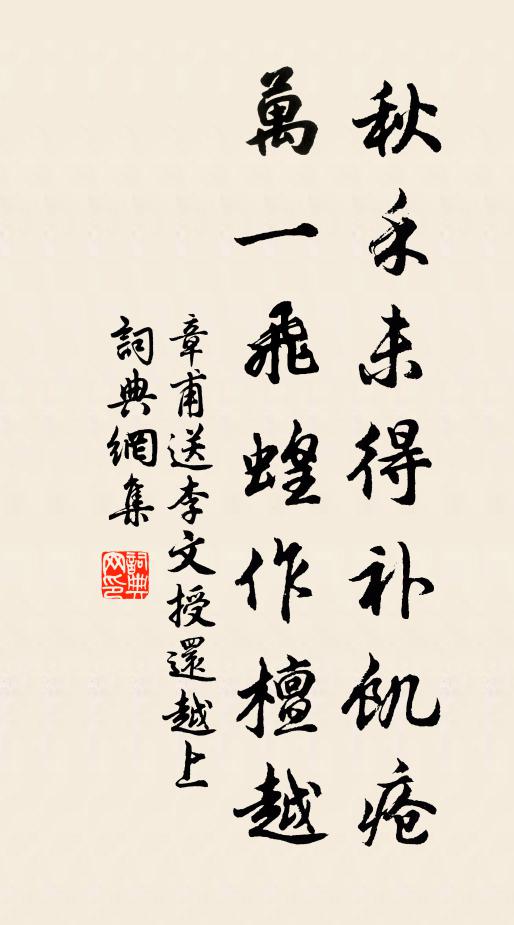 秋禾未得补飢瘡
萬一飛蝗作檀越
章甫送李文授還越上
詞典網集
詞典網印